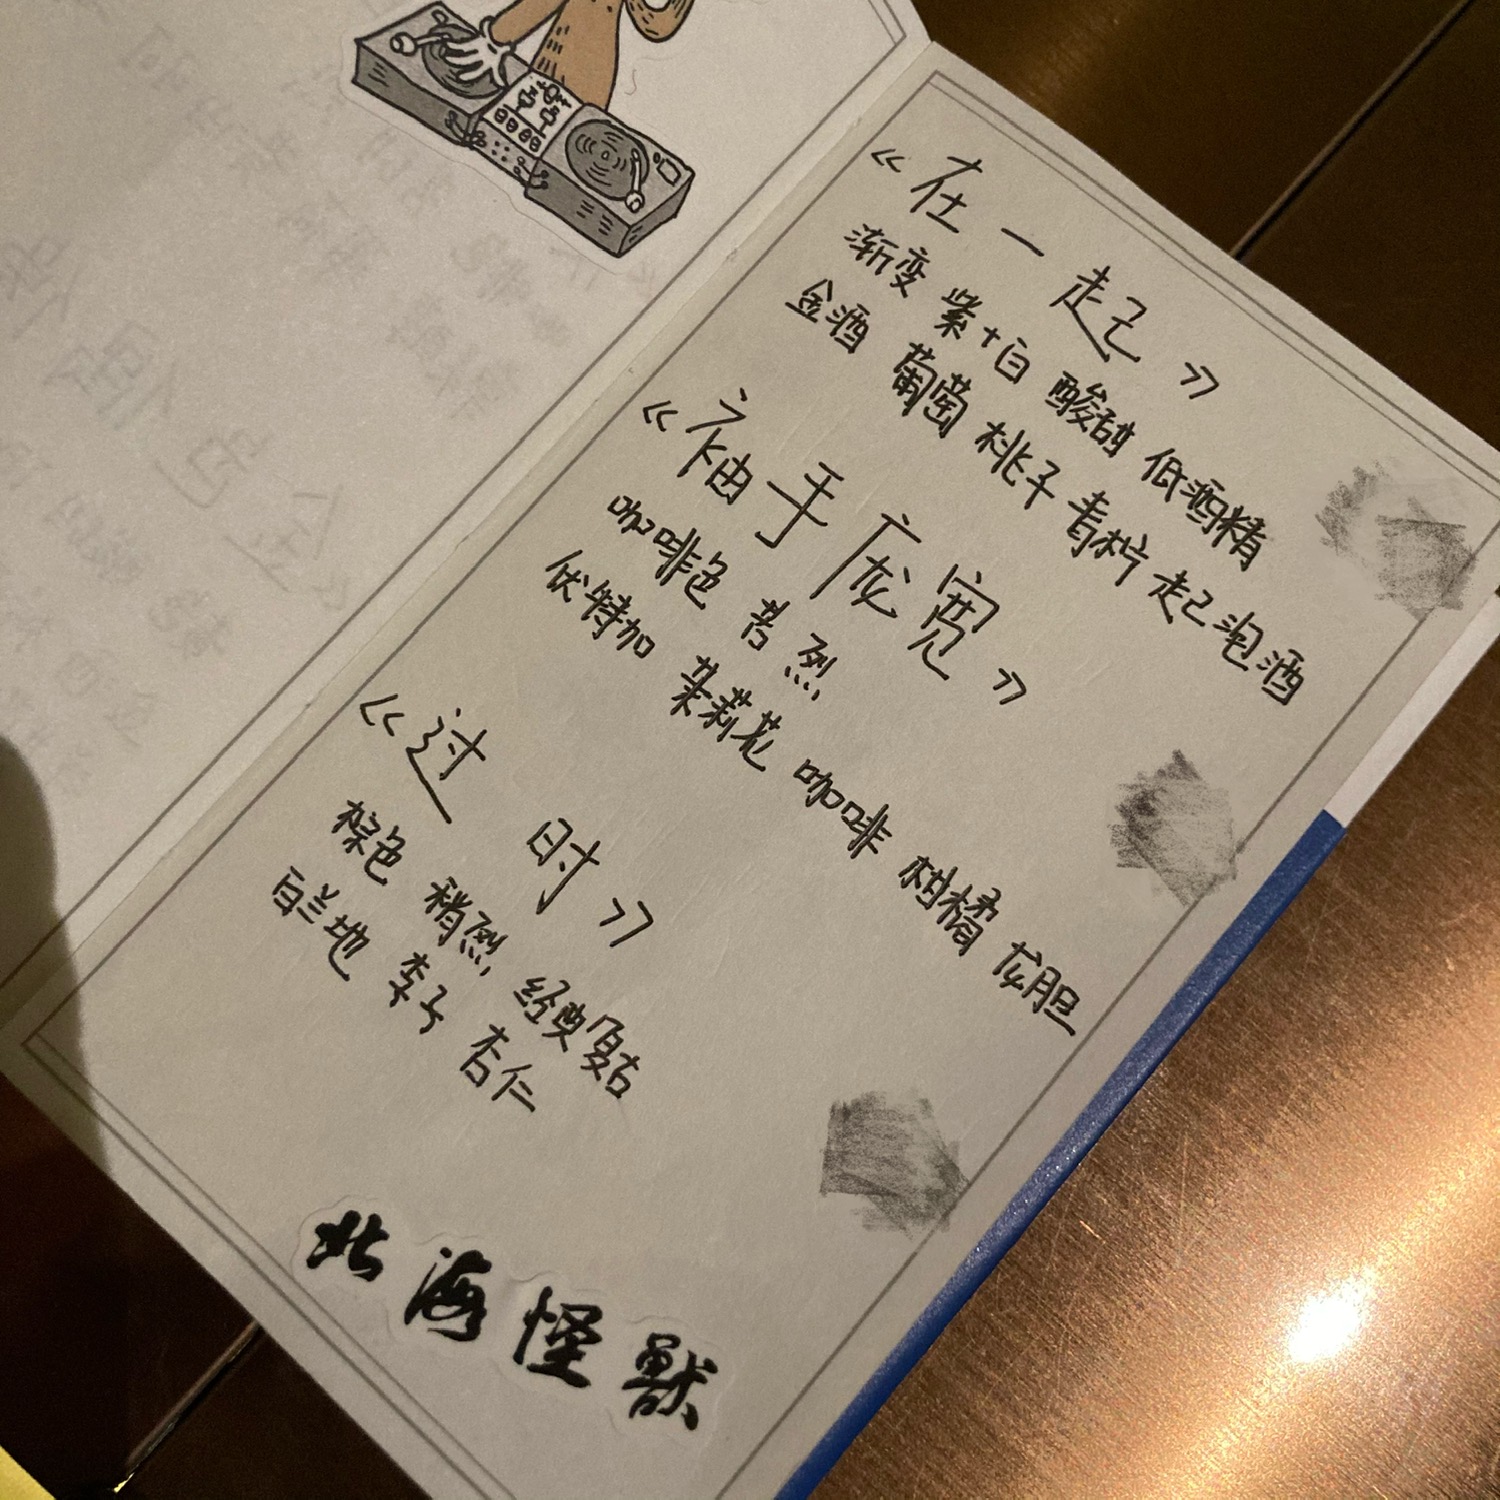 《在一起》
渐变 紫+白 酸甜 低酒精
金酒 葡萄 桃子 青柠 起泡酒
《袖手庞宽》
咖啡色 苦 烈
伏特加 茉莉花 咖啡 柑橘 龙胆
《过时》
棕色 稍烈 经典复古
白兰地 李子 杏仁
北海怪獸